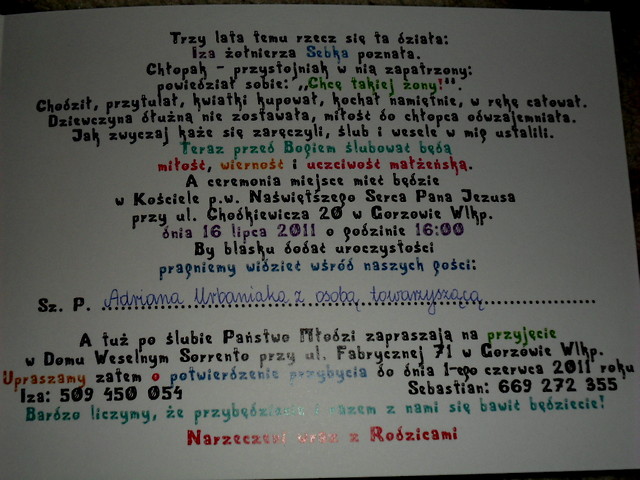 Trzy lata temu rzecz się ta działa:
Iza żołnierza Sebka poznała.
Chłopak - przystojniak w nią zapatrzony:
powiedział sobie: ,,Chcę takiej żony!''.
Chodził, przytulał, kwiatki kupował, kochał namiętnie, w rękę całował.
Dziewczyna dłużną nie zostawała, miłość do chłopca odwzajemniała.
Jak zwyczaj każe się zaręczyli, ślub i wesele w mig ustalili.
Teraz przed Bogiem ślubować będą
miłość, wierność i uczciwość małżeńską.
A ceremonia miejsce mieć będzie
w Kościele p.w. Naświętszego Serca Pana Jezusa
przy ul. Chodkiewicza 20 w Gorzowie Wlkp.
dnia 16 lipca 2011 o godzinie 16:00
By blasku dodać uroczystości
pragniemy widzieć wśród naszych gości:
Sz. P. Adriana Urbaniaka z osobą towarzyszącą
A tuż po ślubie Państwo Młodzi zapraszają na przyjęcie
w Domu Weselnym Sorrento przy ul. Fabrycznej 71 w Gorzowie Wlkp.
Upraszamy zatem o potwierdzenie przybycia do dnia 1-ego czerwca 2011 roku
Iza: 509 450 054 Sebastian: 669 272 355
Bardzo liczymy, że przybędziecie i razem z nami się bawić będziecie!
Narzeczeni wraz z Rodzicami